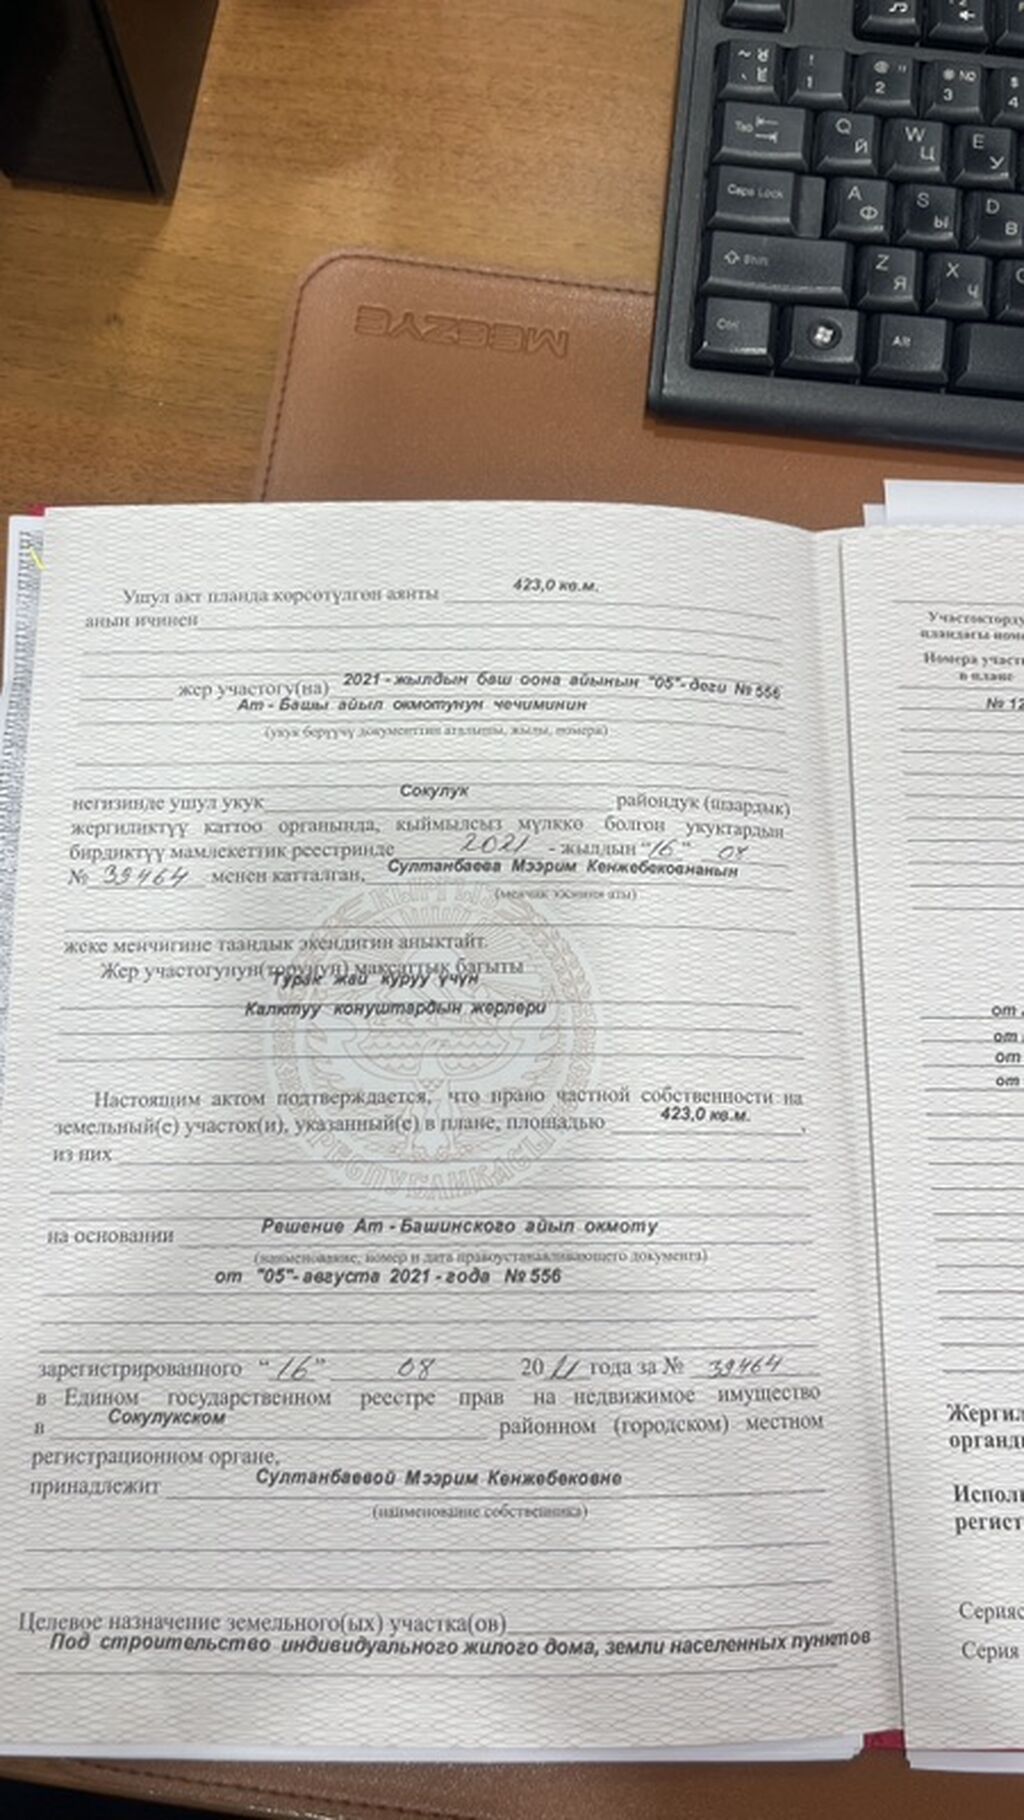 ~
1
2
3
4
Tab
Q Й
W Ц
E У
Caps Lock
A Ф
S Ы
D В
Shift
Z Я
X Ч
Ctrl
Alt
MEEZYE
Ушул акт планда көрсөтүлгөн аянты 423,0 кв.м.
анын ичинен
жер участогу(на) 2021 - жылдын баш оона айынын "05"- деги № 556
Ат - Башы айыл окмотунун чечиминин
(укук берүүчү документтин аталышы, жылы, номери)
негизинде ушул укук Сокулук райондук (шаардык)
жергиликтүү каттоо органында, кыймылсыз мүлккө болгон укуктардын
бирдиктүү мамлекеттик реестринде 2021 - жылдын "16" 08
№ 39464 менен катталган, Султанбаева Мээрим Кенжебековнанын
жеке менчигине таандык экендигин аныктайт.
Жер участогунун(торунун) максаттык багыты
Турак жай куруу үчүн
Калктуу конуштардын жерлери
Настоящим актом подтверждается, что право частной собственности на
земельный(е) участок(и), указанный(е) в плане, площадью 423,0 кв.м.,
из них
на основании Решение Ат - Башинского айыл окмоту
(наименование, номер и дата правоустанавливающего документа)
от "05"- августа 2021 - года № 556
зарегистрированного "16" 08 20 21 года за № 39464
в Едином государственном реестре прав на недвижимое имущество
в Сокулукском районном (городском) местном
регистрационном органе,
принадлежит Султанбаевой Мээрим Кенжебековне
(наименование собственника)
Целевое назначение земельного(ых) участка(ов)
Под строительство индивидуального жилого дома, земли населенных пунктов
Участокторду
пландагы номе
Номера участ
в плане
№ 12
от
от
от
от
Жергил
органды
Исполн
регист
Серияс
Серия